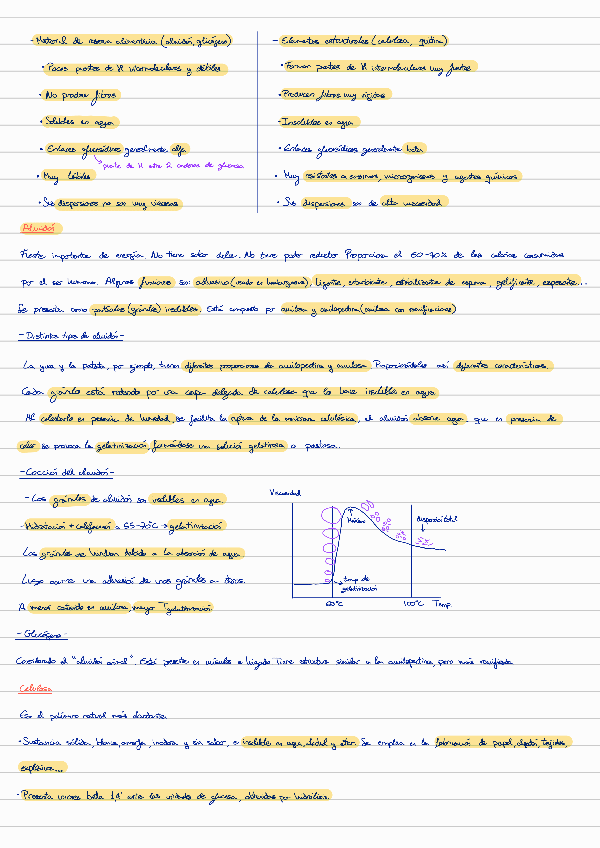 - Material de reserva alimenticia (almidón, glucógeno)
• Pocos puentes de H intermoleculares y débiles
• No produce fibras
• Solubles en agua
• Enlaces glucosídicos generalmente alfa
puente de H entre 2 cadenas de glucosa
• Muy lábiles
• Sus dispersiones no son muy viscosas
- Elementos estructurales (celulosa, quitina)
• Forman puentes de H intermoleculares muy fuertes
• Producen fibras muy rígidas
- Insolubles en agua
• Enlaces glucosídicos generalmente beta
• Muy resistentes a enzimas, microorganismos y agentes químicos
• Sus dispersiones son de alta viscosidad
Almidón
Fuente importante de energía. No tiene sabor dulce. No tiene poder reductor. Proporciona el 60-70% de las calorías consumidas
por el ser humano. Algunas funciones son: adhesivo (usado en hamburguesas), ligante, enturbiante, estabilizante de espuma, gelificante, espesante...
Se presenta como partículas (gránulos) insolubles. Está compuesto por amilosa y amilopectina (amilosa con ramificaciones)
- Distintos tipos de almidón -
La yuca y la patata, por ejemplo, tienen diferentes proporciones de amilopectina y amilosa. Proporcionándoles así diferentes características.
Cada gránulo está rodeado por una capa delgada de celulosa que lo hace insoluble en agua
Al calentarlo en presencia de humedad, se facilita la ruptura de la membrana celulósica, el almidón absorbe agua, que en presencia de
calor se provoca la gelatinización, formándose una solución gelatinosa o pastosa.
- Cocción del almidón -
- Los gránulos de almidón son insolubles en agua
- Hidratación + calefacción a 55-70°C → gelatinización
Los gránulos se hinchan debido a la absorción de agua
Luego ocurre una adhesión de unos gránulos a otros.
A menor contenido en amilosa, mayor T gelatinización
Viscosidad
Máximo
dispersión total
temp. de
gelatinización
60°C 100°C Temp.
- Glucógeno -
Considerado el "almidón animal". Está presente en músculo e hígado. Tiene estructura similar a la amilopectina, pero más ramificada
Celulosa
Es el polímero natural más abundante
• Sustancia sólida, blanca, amorfa, inodora y sin sabor, e insoluble en agua, alcohol y éter. Se emplea en la fabricación de papel, algodón, tejidos,
explosivos...
• Presenta uniones beta 1,4' entre las unidades de glucosa, obtenidas por hidrólisis.